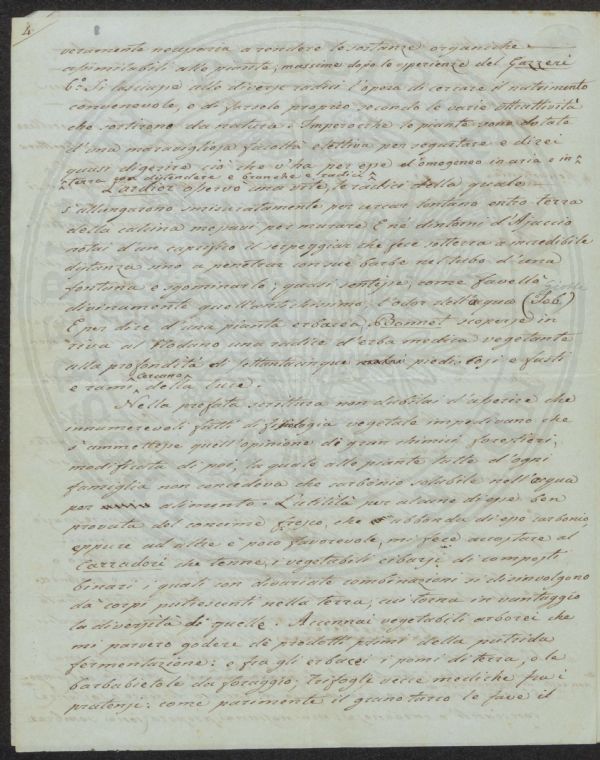 4
veramente a rendere le sostanze organiche
assimilabili alle piante, massime dopo le esperienze del Gazzeri
6.° Si lasciasse alle diverse radici l'opera di cercare il nutrimento
convenevole, e di farselo proprio secondo le varie attrattività
che sortirono da natura: Imperocchè le piante sono dotate
d'una maravigliosa facoltà elettiva per segustare e direi
quasi digerire ciò che v'ha per esse d'omogeneo in aria e in
terra distendere e branche e radici
osservò una vite, le radici della quale
s'allungarono per cercar lontano entro terra
della calcina messavi per murare E nè dintorni d'Ajaccio
notai d'un caprifico il serpeggiar che fece sotterra a incredibile
distanza sino a penetrar con sue barbe nel tubo d'una
fontana e sgominarlo; quasi sentisse, come favellò
divinamente quell' l'odor dell'acqua (Job)
E per dire d'una pianta erbacea, Bonnet scoperse in
riva al Rodano una radice d'erba medica vegetante
alla profondità di settantacinque piedi. Così e fusti
e rami cercano della luce.
Nella prefata scrittura non dubitai d'asserire che
innumerevoli fatti di fisiologia vegetale impedivano che
s'ammettesse quell'opinione di gran chimici forestieri,
modificata di poi, la quale alle piante tutte d'ogni
famiglia non concedeva che carbonio solubile nell'acqua
per alimento. L'utilità per alcune di esse ben
provata del concime fresco, che abbonda di esso carbonio
eppure ad altre è poco favorevole, mi fece accostare al
Carradori che tenne, i vegetabili cibarsi di composti
binari i quali con divariate combinazioni si disinvolgono
da corpi putrescenti nella terra, cui torna in vantaggio
la diversità di quelle: Accennai vegetabili arborei che
mi parvero godere de prodotti primi della putrida
fermentazione: e fra gli erbacei i pomi di terra, e le
barbabietole da foraggio: trifoglie mediche fra i
pratensi: come parimente il grano turco le fave il